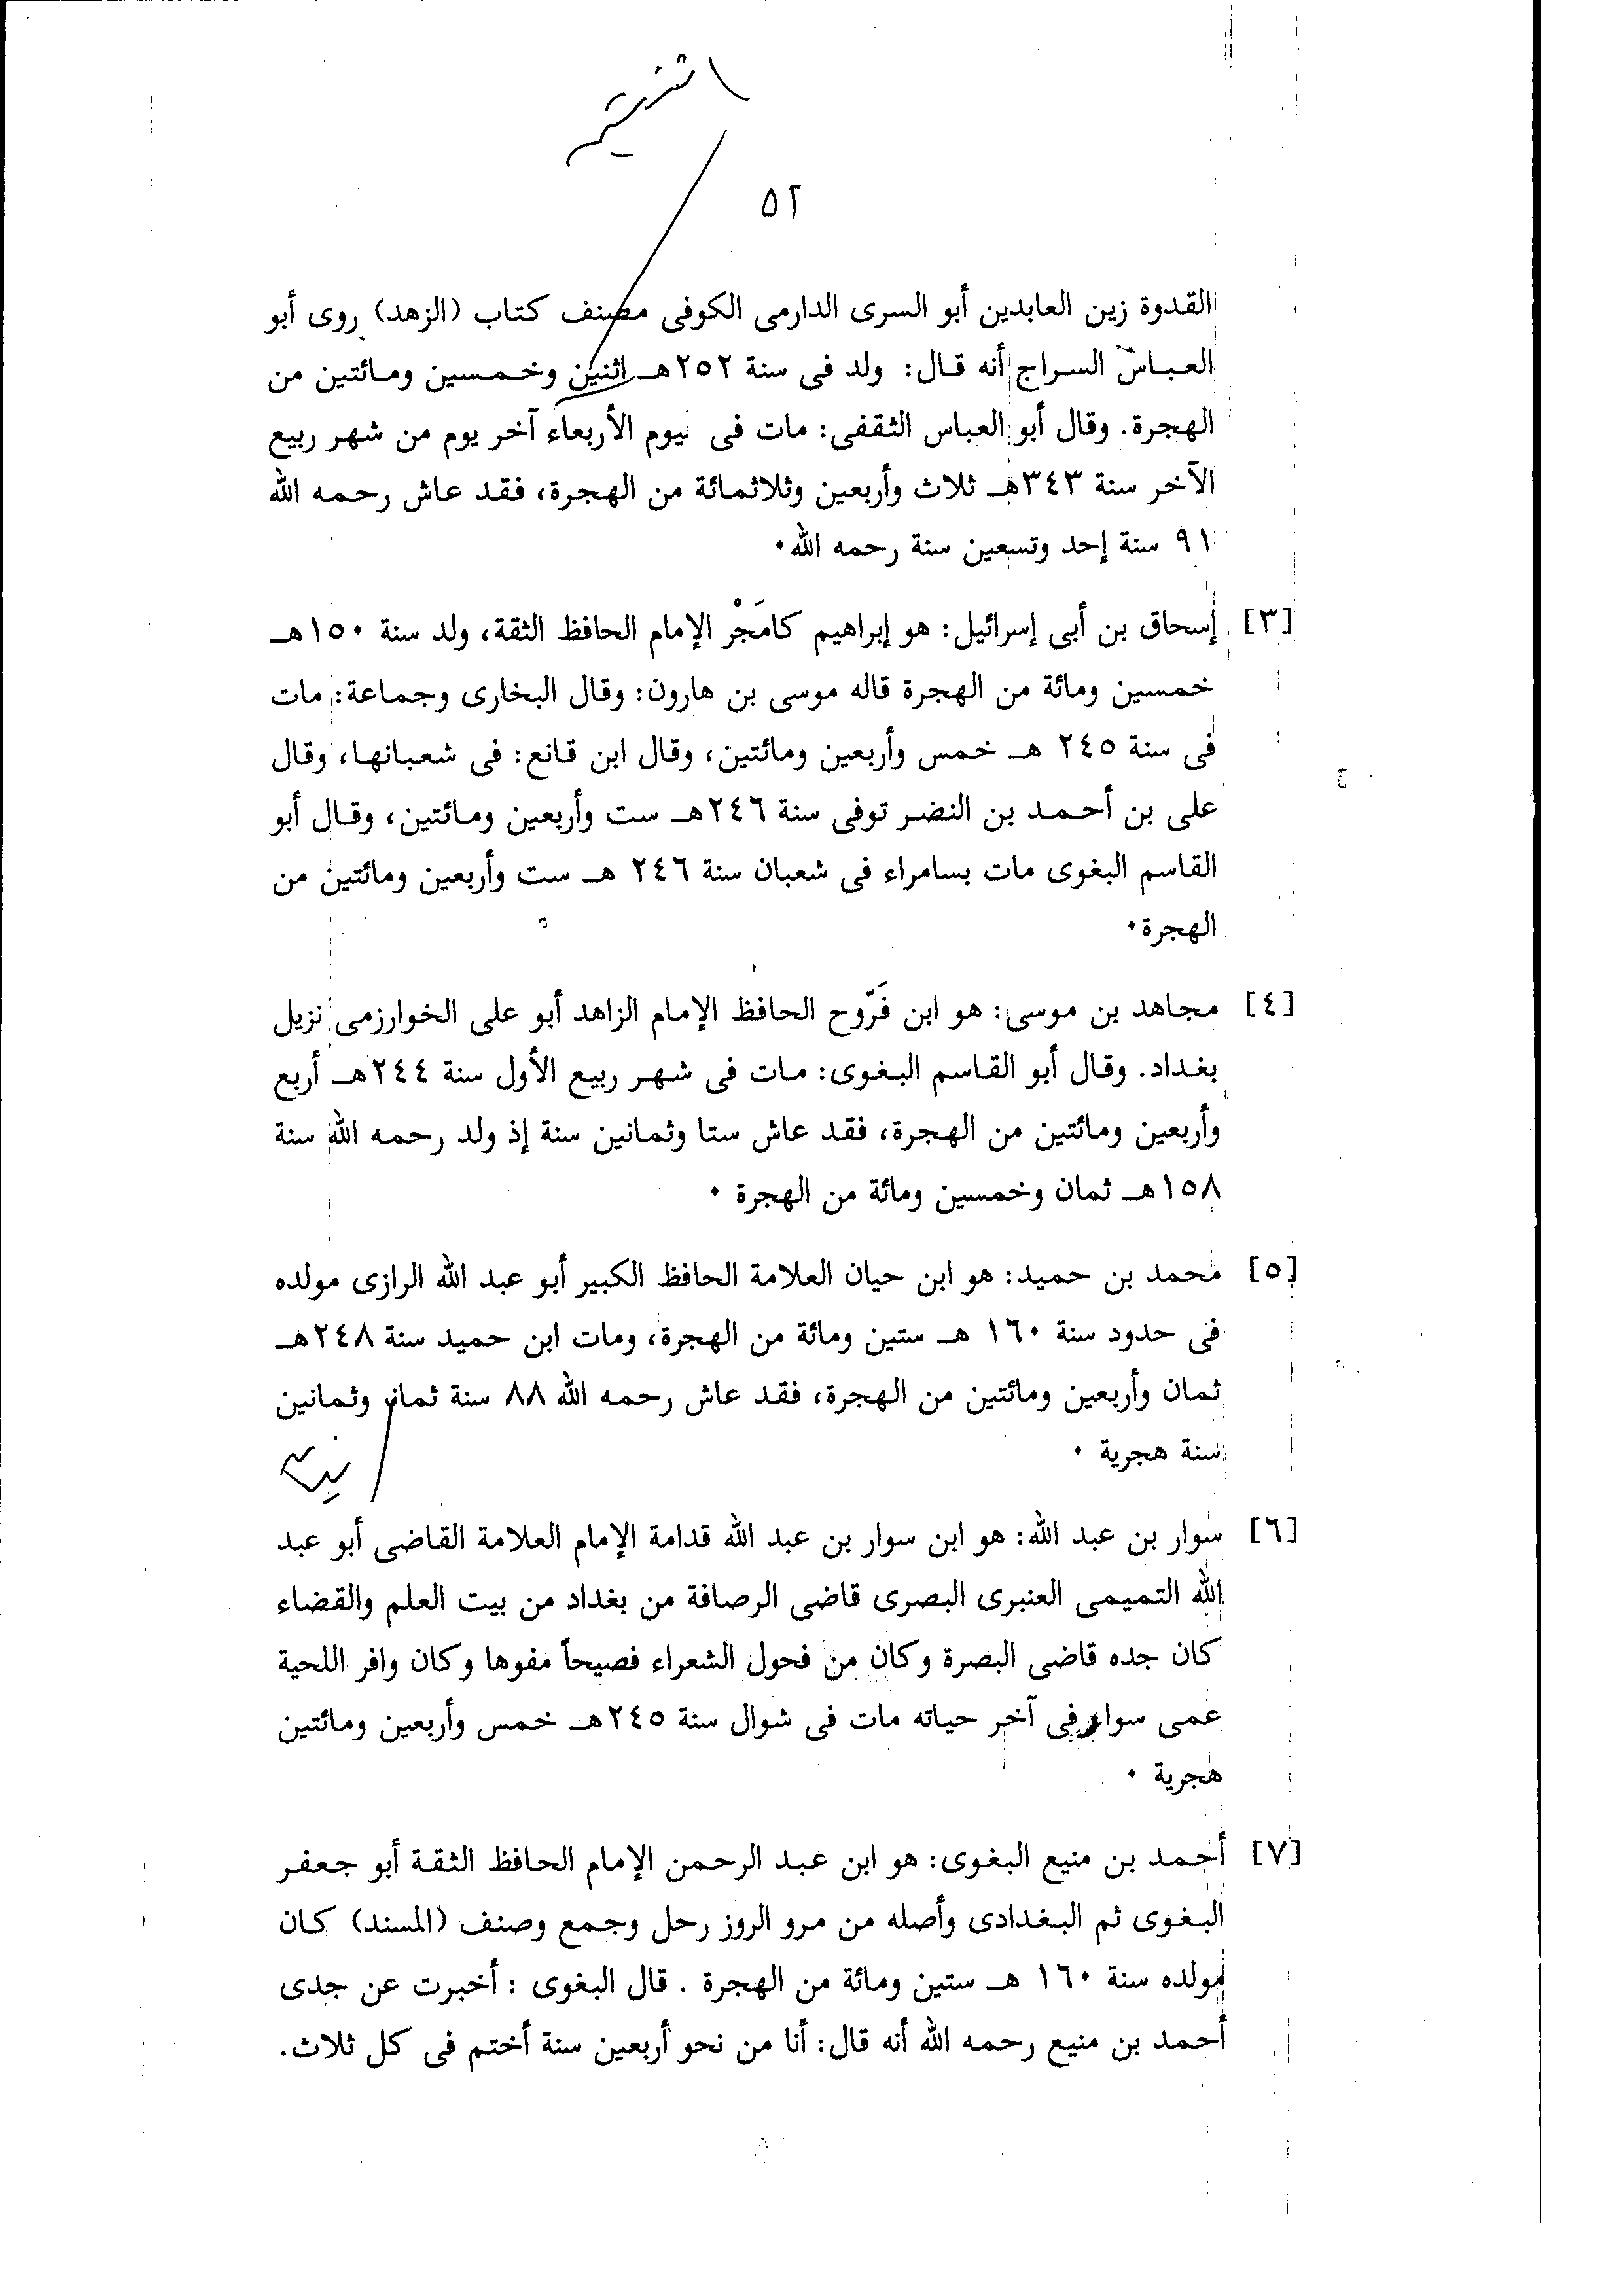 ٥٢
القدوة زين العابدين أبو السرى الدارمى الكوفى مصنف كتاب (الزهد) روى أبو
العباس السراج أنه قال: ولد فى سنة ٢٥٢هـ اثنين وخمسين ومائتين من
الهجرة. وقال أبو العباس الثقفى: مات فى يوم الأربعاء آخر يوم من شهر ربيع
الآخر سنة ٣٤٣هـ ثلاث وأربعين وثلاثمائة من الهجرة، فقد عاش رحمه الله
٩١ سنة إحد وتسعين سنة رحمه الله٠
[٣] إسحاق بن أبى إسرائيل: هو إبراهيم كامَجْر الإمام الحافظ الثقة، ولد سنة ١٥٠هـ
خمسين ومائة من الهجرة قاله موسى بن هارون: وقال البخارى وجماعة: مات
فى سنة ٢٤٥ هـ خمس وأربعين ومائتين، وقال ابن قانع: فى شعبانها، وقال
على بن أحمد بن النضر توفى سنة ٢٤٦هـ ست وأربعين ومائتين، وقال أبو
القاسم البغوى مات بسامراء فى شعبان سنة ٢٤٦ هـ ست وأربعين ومائتين من
الهجرة٠
[٤] مجاهد بن موسى: هو ابن فَرّوح الحافظ الإمام الزاهد أبو على الخوارزمى نزيل
بغداد. وقال أبو القاسم البغوى: مات فى شهر ربيع الأول سنة ٢٤٤هـ أربع
وأربعين ومائتين من الهجرة، فقد عاش ستا وثمانين سنة إذ ولد رحمه الله سنة
١٥٨هـ ثمان وخمسين ومائة من الهجرة ٠
[٥] محمد بن حميد: هو ابن حيان العلامة الحافظ الكبير أبو عبد الله الرازى مولده
فى حدود سنة ١٦٠ هـ ستين ومائة من الهجرة، ومات ابن حميد سنة ٢٤٨هـ
ثمان وأربعين ومائتين من الهجرة، فقد عاش رحمه الله ٨٨ سنة ثمان وثمانين
سنة هجرية ٠
[٦] سوار بن عبد الله: هو ابن سوار بن عبد الله قدامة الإمام العلامة القاضى أبو عبد
الله التميمى العنبرى البصرى قاضى الرصافة من بغداد من بيت العلم والقضاء
كان جده قاضى البصرة وكان من فحول الشعراء فصيحاً مفوها وكان وافر اللحية
عمى سوار فى آخر حياته مات فى شوال سنة ٢٤٥هـ خمس وأربعين ومائتين
هجرية ٠
[٧] أحمد بن منيع البغوى: هو ابن عبد الرحمن الإمام الحافظ الثقة أبو جعفر
البغوى ثم البغدادى وأصله من مرو الروز رحل وجمع وصنف (المسند) كان
مولده سنة ١٦٠ هـ ستين ومائة من الهجرة . قال البغوى : أخبرت عن جدى
أحمد بن منيع رحمه الله أنه قال: أنا من نحو أربعين سنة أختم فى كل ثلاث.